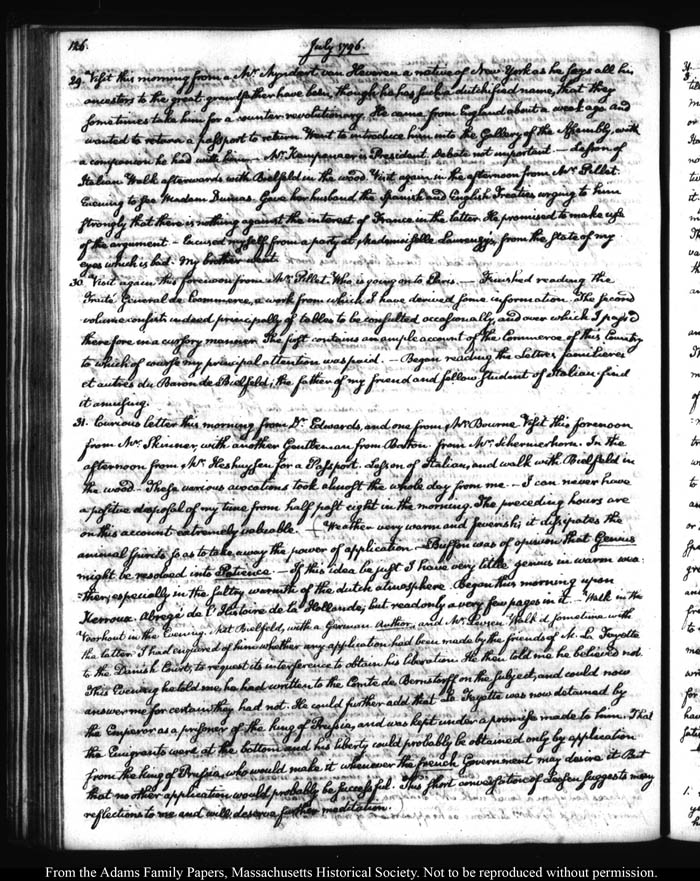 126.
July 1796.
29. Visit this morning from a Mr. van Heveren a native of New York as he says all his
ancestors to the great-grandfather have been, though he has such a dutchified name, that they
sometimes take him for a counter revolutionary. He came from England about a week ago and
wanted to return a passport to return. Went to introduce him into the Gallery of the Assembly, with
a companion he had with him. Mr. is President. Debate not important — Lesson of
Italian. Walk afterwards with Bielfeld in the wood. Visit again in the afternoon from Mr. Pellet.
Evening to see Madam Dumas. Gave her husband the Spanish and English Treaties urging to him
strongly that there is nothing against the interest of France in the latter. He promised to make use
of the argument — Excused myself from a party at Mademoiselle from the state of my
eyes which is bad. My brother went.
30. Visit again this forenoon from Mr. Pellet. Who is going on to Paris. — Finished reading the
Traité General de Commerce, a work from which I have derived some information. The second
volume consists indeed principally of tables to be consulted occasionally, and over which I pass'd
therefore in a cursory manner. The first contains an ample account of the Commerce of this Country
to which of course my principal attention was paid. — Began reading the Lettres familieres
et autres du Baron de Bielfeld; the father of my friend and fellow student of Italian. find
it amusing.
31. Curious letter this morning from Dr. Edwards, and one from Mr. Bourne. Visit this forenoon
from Mr. Skinner, with another Gentleman from Boston. from Mr. Schermerhorn. In the
afternoon from Mr. Heshuysen for a Passport. Lesson of Italian, and walk with Bielfeld in
the wood. These various avocations took almost the whole day from me. — I can never have
a positive disposal of my time from half past eight in the morning. The preceding hours are
on this account extremely valuable. — Weather very warm and feverish; it dissipates the
animal spirits so as to take away the power of application. Buffon was of opinion that Genius
might be resolved into Patience. — If this idea be just I have very little genius in warm wea-
-ther, especially in the sultry warmth of the dutch atmosphere. Began this morning upon
Kerroux Abregé de l'Histoire de la Hollande; but read only a very few pages in it. — Walk in the
Voorhout in the Evening. Met Bielfeld, with a German Author, and Mr. Levsen. Walk'd sometime with
the latter. I had enquired of him whether any application had been made by the friends of M. La Fayette
to the Danish Court, to request its interference to obtain his liberation. He then told me he believed not
This Evening he told me, he had written to the Comte de Bernstorff on the subject, and could now
answer me for certain they had not. He could further add that La Fayette was now detained by
the Emperor as a prisoner of the king of Prussia, and was kept under a promise made to him. That
the Emigrants were at the bottom and his liberty could probably be obtained only by application
from the king of Prussia, who would make it whenever the french Government may desire it. But
that no other application would probably be successful. This short conversation of Levsen suggests many
reflections to me and will deserve further meditation.
From the Adams Family Papers, Massachusetts Historical Society. Not to be reproduced without permission.